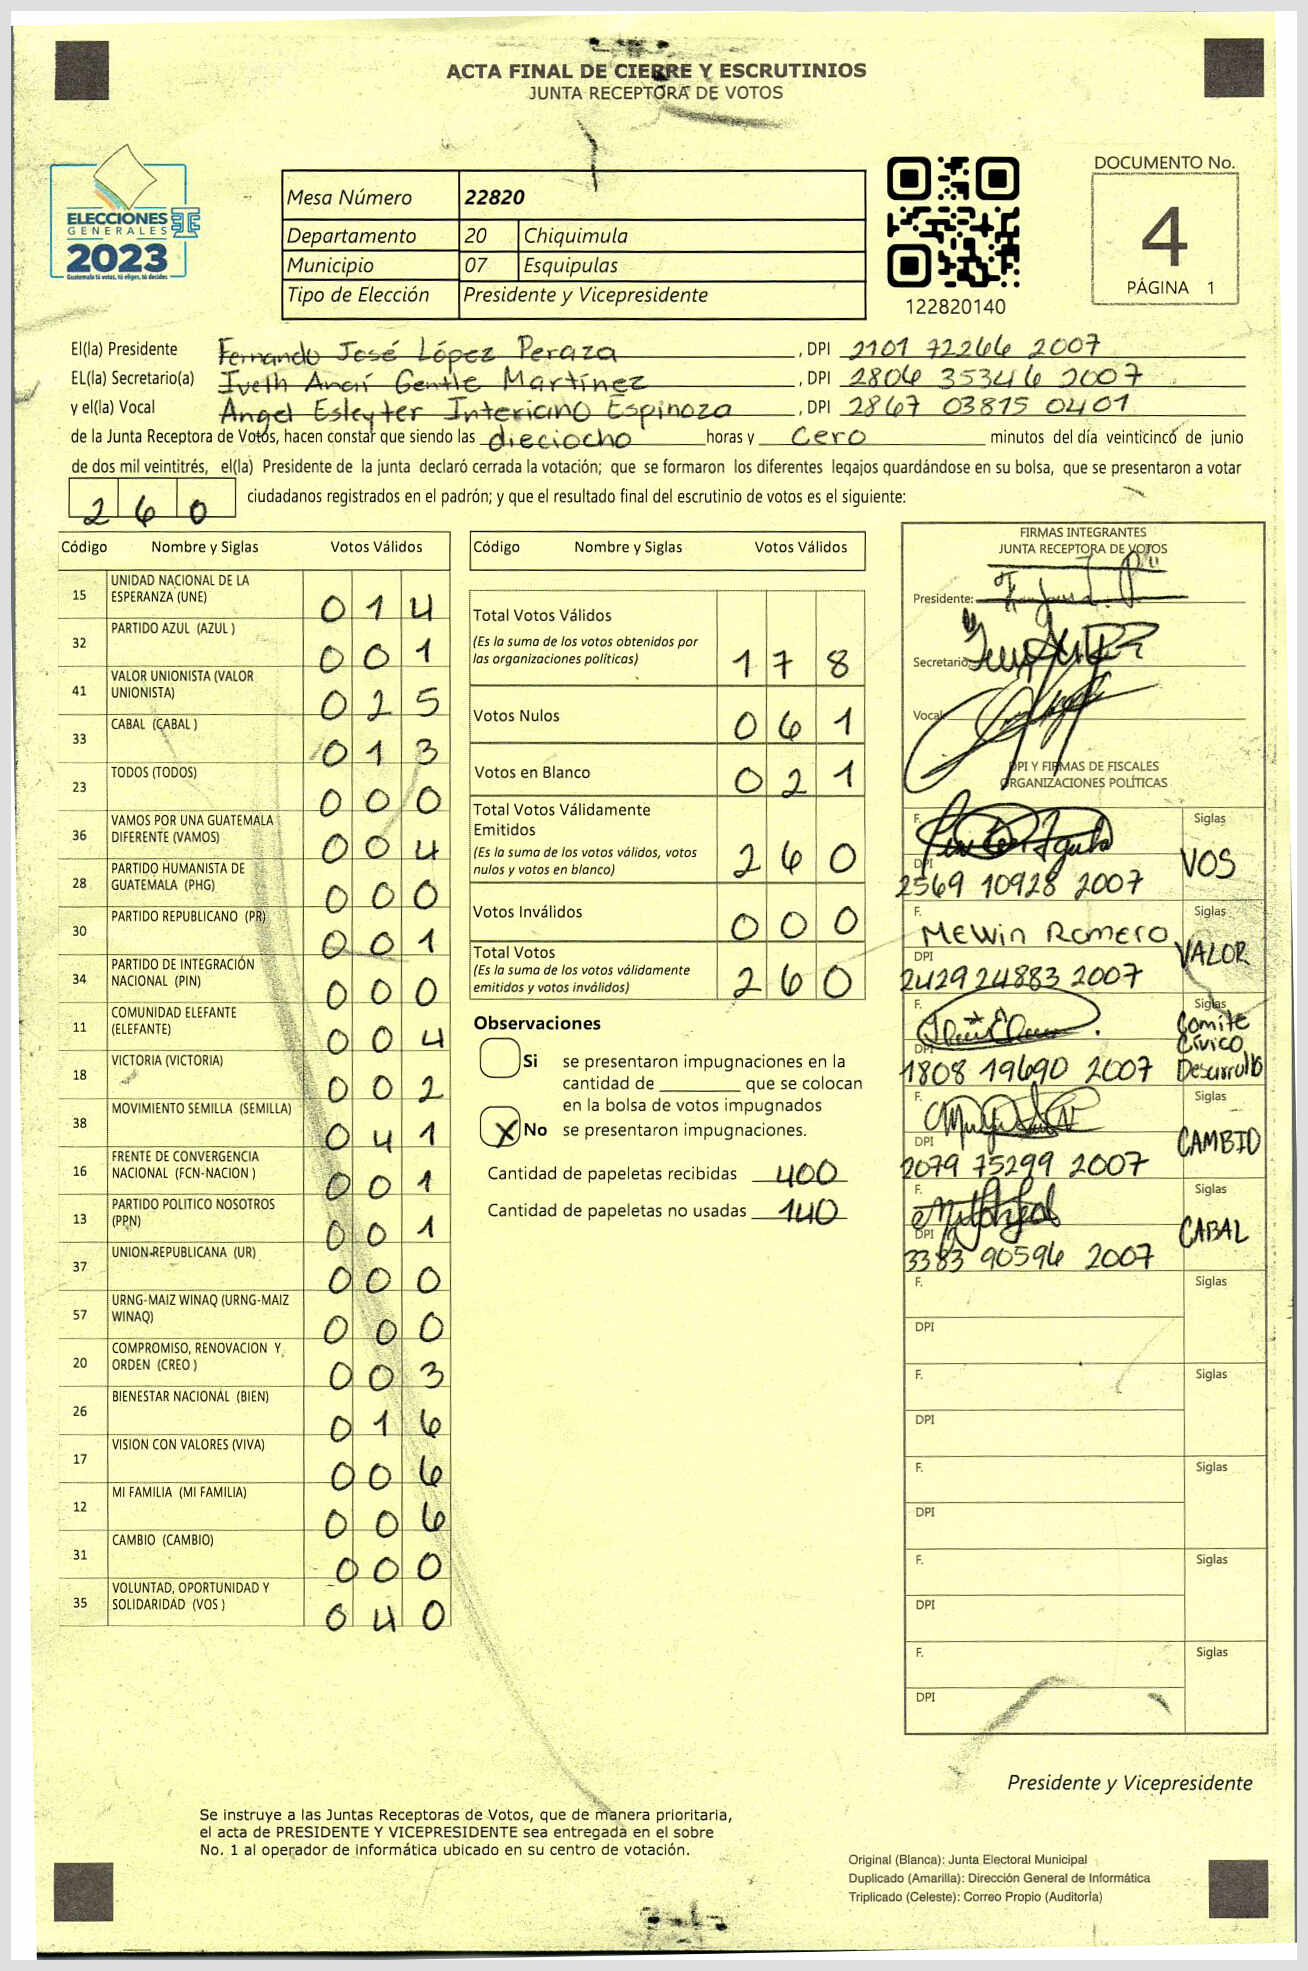 ACTA FINAL DE CIERRE Y ESCRUTINIOS
JUNTA RECEPTORA DE VOTOS
ELECCIONES
GENERALES
2023
Guatemala tú votas, tú eliges, tú decides
Mesa Número 22820
Departamento 20 Chiquimula
Municipio 07 Esquipulas
Tipo de Elección Presidente y Vicepresidente
122820140
DOCUMENTO No.
4
PÁGINA 1
El(la) Presidente Fernando José López Peraza, DPI 2101 72266 2007
EL(la) Secretario(a) Iveth Anaí Gentle Martínez, DPI 2806 35346 2007
y el(la) Vocal Angel Esleyter Interiano Espinoza, DPI 2867 03815 0401
de la Junta Receptora de Votos, hacen constar que siendo las dieciocho horas y cero minutos del día veinticinco de junio
de dos mil veintitrés, el(la) Presidente de la junta declaró cerrada la votación; que se formaron los diferentes legajos guardándose en su bolsa, que se presentaron a votar
260 ciudadanos registrados en el padrón; y que el resultado final del escrutinio de votos es el siguiente:
Código Nombre y Siglas Votos Válidos
15 UNIDAD NACIONAL DE LA ESPERANZA (UNE) 014
32 PARTIDO AZUL (AZUL ) 001
41 VALOR UNIONISTA (VALOR UNIONISTA) 025
33 CABAL (CABAL ) 013
23 TODOS (TODOS) 000
36 VAMOS POR UNA GUATEMALA DIFERENTE (VAMOS) 004
28 PARTIDO HUMANISTA DE GUATEMALA (PHG) 000
30 PARTIDO REPUBLICANO (PR) 001
34 PARTIDO DE INTEGRACIÓN NACIONAL (PIN) 000
11 COMUNIDAD ELEFANTE (ELEFANTE) 004
18 VICTORIA (VICTORIA) 002
38 MOVIMIENTO SEMILLA (SEMILLA) 041
16 FRENTE DE CONVERGENCIA NACIONAL (FCN-NACION ) 001
13 PARTIDO POLITICO NOSOTROS (PPN) 001
37 UNION REPUBLICANA (UR) 000
57 URNG-MAIZ WINAQ (URNG-MAIZ WINAQ) 000
20 COMPROMISO, RENOVACION Y ORDEN (CREO ) 003
26 BIENESTAR NACIONAL (BIEN) 016
17 VISION CON VALORES (VIVA) 006
12 MI FAMILIA (MI FAMILIA) 006
31 CAMBIO (CAMBIO) 000
35 VOLUNTAD, OPORTUNIDAD Y SOLIDARIDAD (VOS ) 040
Código Nombre y Siglas Votos Válidos
Total Votos Válidos
(Es la suma de los votos obtenidos por
las organizaciones políticas) 178
Votos Nulos 061
Votos en Blanco 021
Total Votos Válidamente
Emitidos
(Es la suma de los votos válidos, votos
nulos y votos en blanco) 260
Votos Inválidos 000
Total Votos
(Es la suma de los votos válidamente
emitidos y votos inválidos) 260
Observaciones
Si se presentaron impugnaciones en la
cantidad de ________ que se colocan
en la bolsa de votos impugnados
X No se presentaron impugnaciones.
Cantidad de papeletas recibidas 400
Cantidad de papeletas no usadas 140
FIRMAS INTEGRANTES
JUNTA RECEPTORA DE VOTOS
Presidente:
Secretario
Vocal
DPI Y FIRMAS DE FISCALES
ORGANIZACIONES POLÍTICAS
F. Siglas
DPI 2569 10928 2007 VOS
F. Melvin Romero Siglas
DPI 2429 24883 2007 VALOR
F. Siglas
DPI 1808 19690 2007 Comité Cívico Desarrollo
F. Siglas
DPI 2079 75299 2007 CAMBIO
F. Siglas
DPI 3383 90596 2007 CABAL
F. Siglas
DPI
F. Siglas
DPI
F. Siglas
DPI
F. Siglas
DPI
F. Siglas
DPI
Presidente y Vicepresidente
Se instruye a las Juntas Receptoras de Votos, que de manera prioritaria,
el acta de PRESIDENTE Y VICEPRESIDENTE sea entregada en el sobre
No. 1 al operador de informática ubicado en su centro de votación.
Original (Blanca): Junta Electoral Municipal
Duplicado (Amarilla): Dirección General de Informática
Triplicado (Celeste): Correo Propio (Auditoría)